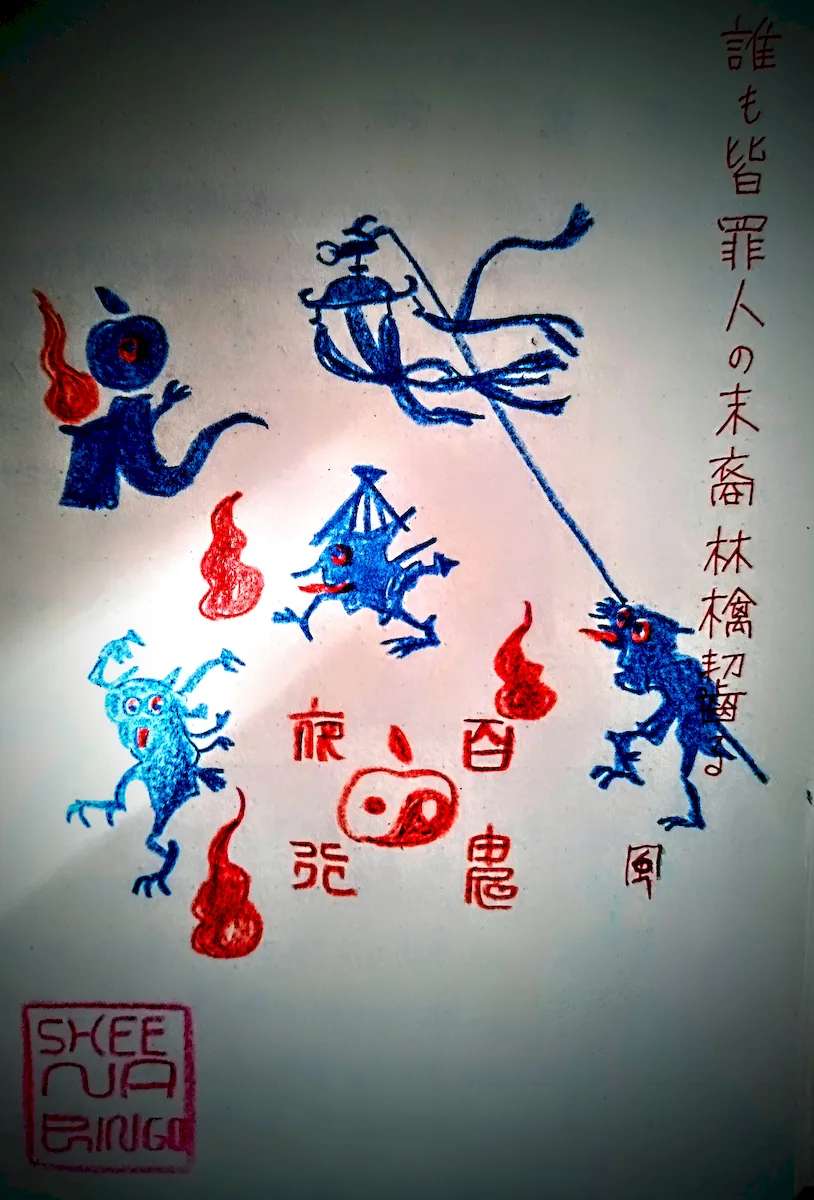 誰も皆罪人の末裔林檎齧る
百鬼
夜行
SHEE
NA
RINGO